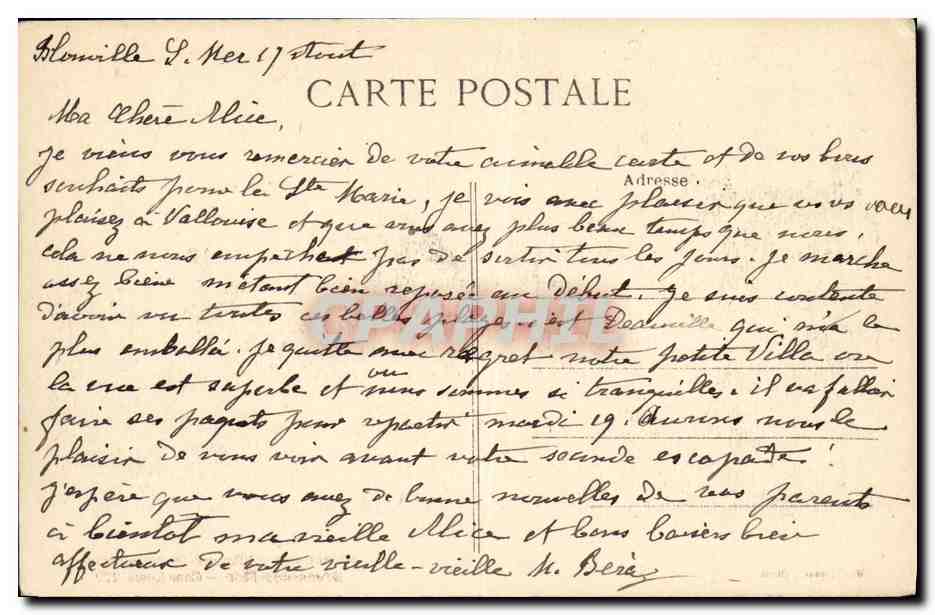 Blonville S. Mer 17 Aout
CARTE POSTALE
Ma Chère Alice,
je viens vous remercier de votre aimable carte et de vos bons
Adresse
souhaits pour la Ste Marie, je vois avec plaisir que vous vous
plaisez à Vallouise et que vous avez plus beau temps que nous,
cela ne nous empêchait pas de sortir tous les jours. Je marche
assez bien m'étant bien reposée au début. Je suis contente
d'avoir vu toutes ces belles plages. c'est Deauville qui m'a le
CPAPHIL
plus emballée. Je quitte avec regret notre petite Villa ou
la vue est superbe et ou nous sommes si tranquilles. il va falloir
faire ses paquets pour repartir mardi 19. Aurons nous le
plaisir de vous voir avant votre seconde escapade!
J'espère que vous avez de bonne nouvelles de vos parents
à bientot ma vieille Alice et bons baisers bien
affectueux de votre vieille-vieille M.